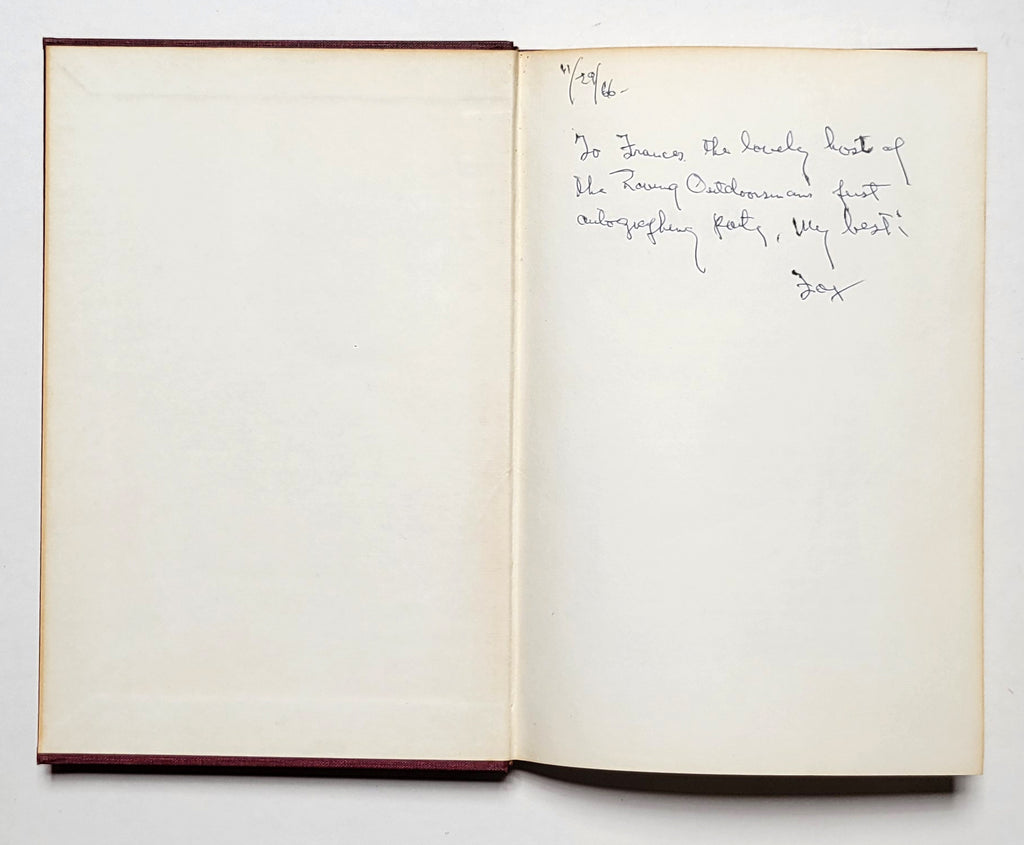 11/29/66-
To Frances, the lovely host of
the Roving Outdoorsmans first
autographing party, My best!
Fox